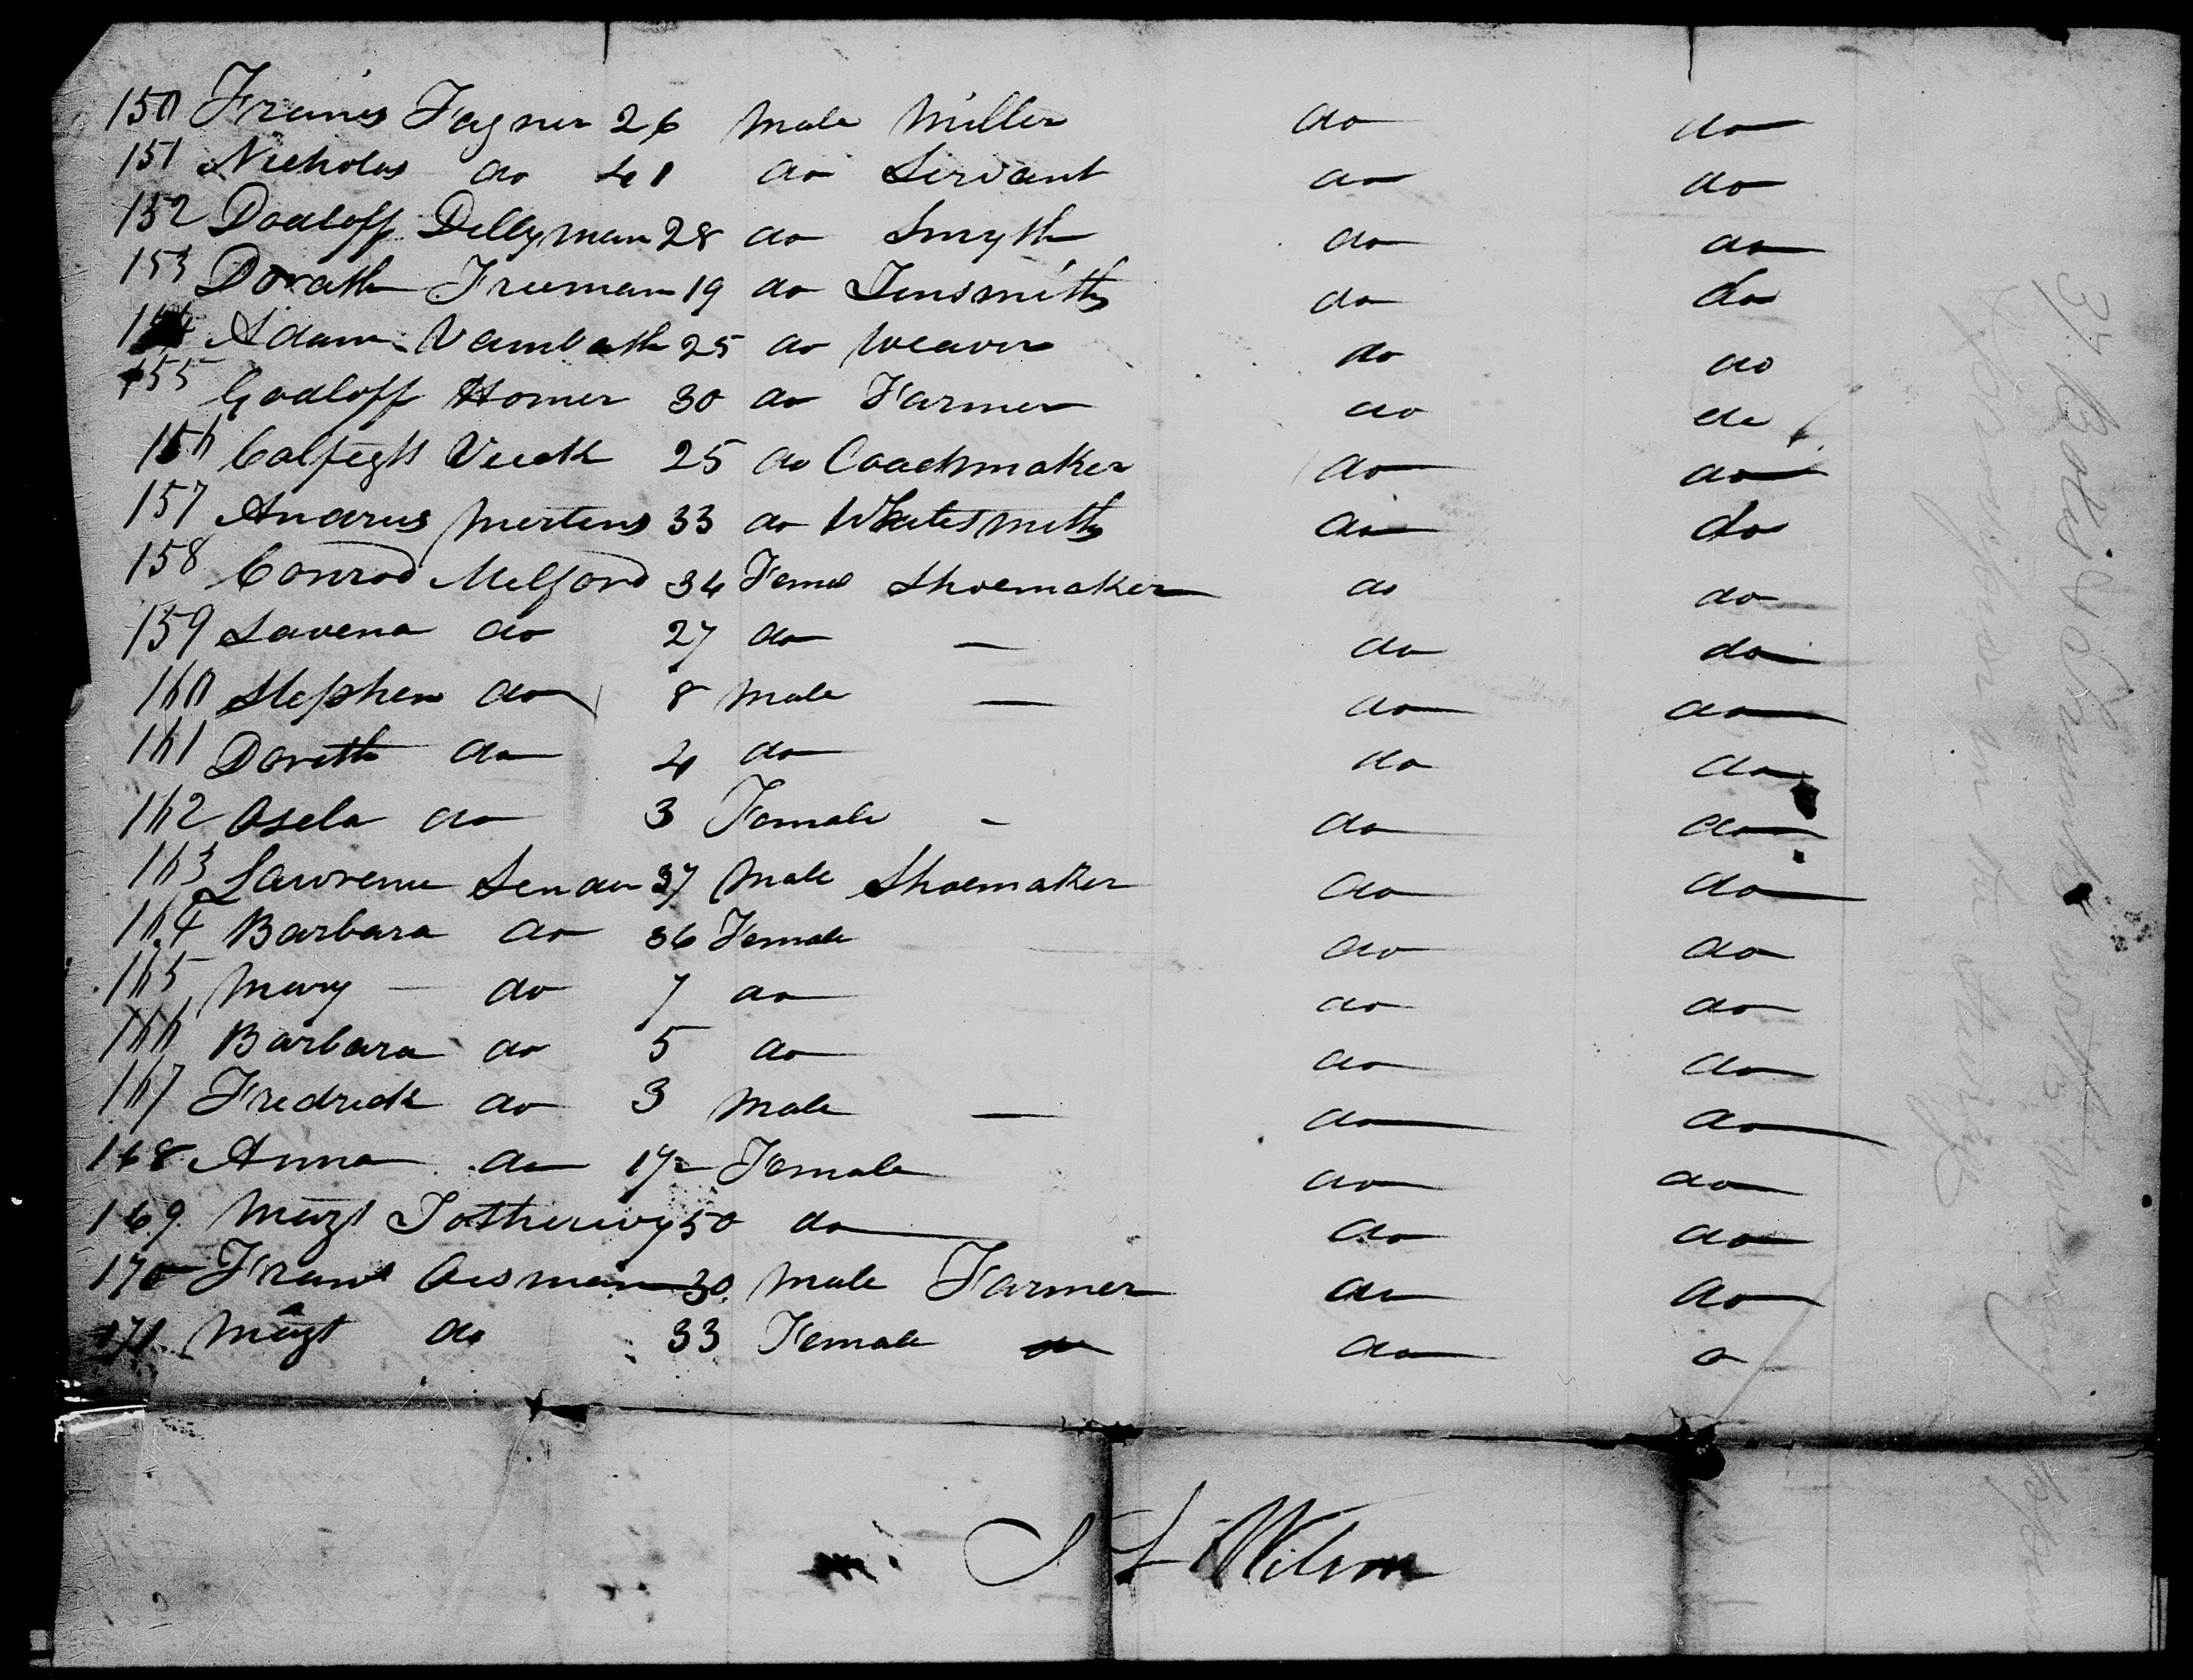 150 Francis Fagner 26 Male Miller do do
151 Nicholas do 41 do Servant do do
152 Dodloff Dellyman 28 do Smyth do do
153 Dorath Freeman 19 do Tinsmith do do
154 Adam Vambath 25 do Weaver do do
155 Godloff Homer 30 do Farmer do do
156 Veuck 25 do Coachmaker do do
157 Andrus Mertens 33 do Whitesmith do do
158 Conrod Melford 34 Femal Shoemaker do do
159 Lavena do 27 do — do do
160 Stephen do 8 Male — do do
161 Doreth do 4 do do do
162 Osela do 3 Female - do do
163 Lawrence Sender 37 Male Shoemaker do do
164 Barbara do 36 Female do do
165 Mary — do 7 do do do
166 Barbara do 5 do do do
167 Fredrick do 3 Male — do do
168 Anna do Female do do
169 Margt 50 do do do
170 Frans Oesman 30 Male Farmer do do
171 Margt do 33 Female do do o
Wilson